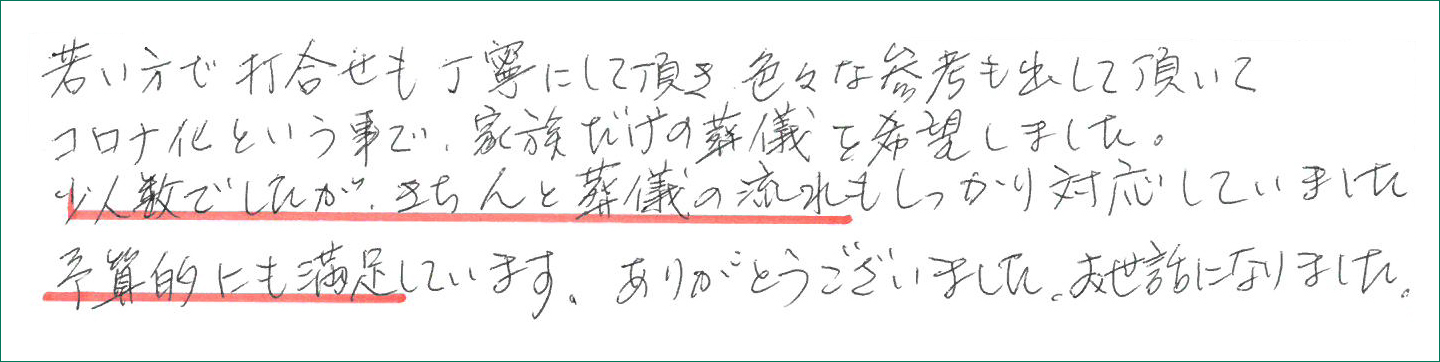 若い方で打合せも丁寧にして頂き色々な参考も出して頂いて
コロナ化という事で、家族だけの葬儀を希望しました。
少人数でしたが、きちんと葬儀の流れもしっかり対応していました
予算的にも満足しています。ありがとうございました。お世話になりました。